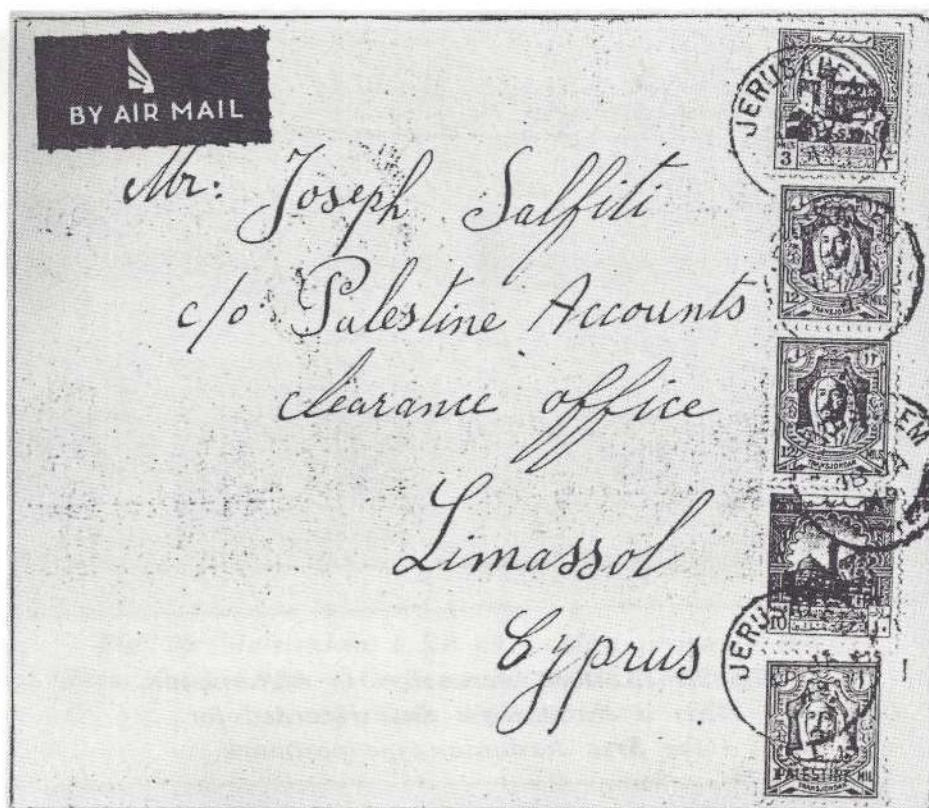 BY AIR MAIL
Mr: Joseph Salfiti
c/o Palestine Accounts
clearance office
Limassol
Cyprus
JERUSALEM
3
MILS
12 MILS
TRANSJORDAN
١٢
12 MILS
TRANSJORDAN
JERUSALEM
10
١٠
JERU
PALESTINE
MIL
TRANSJORDAN